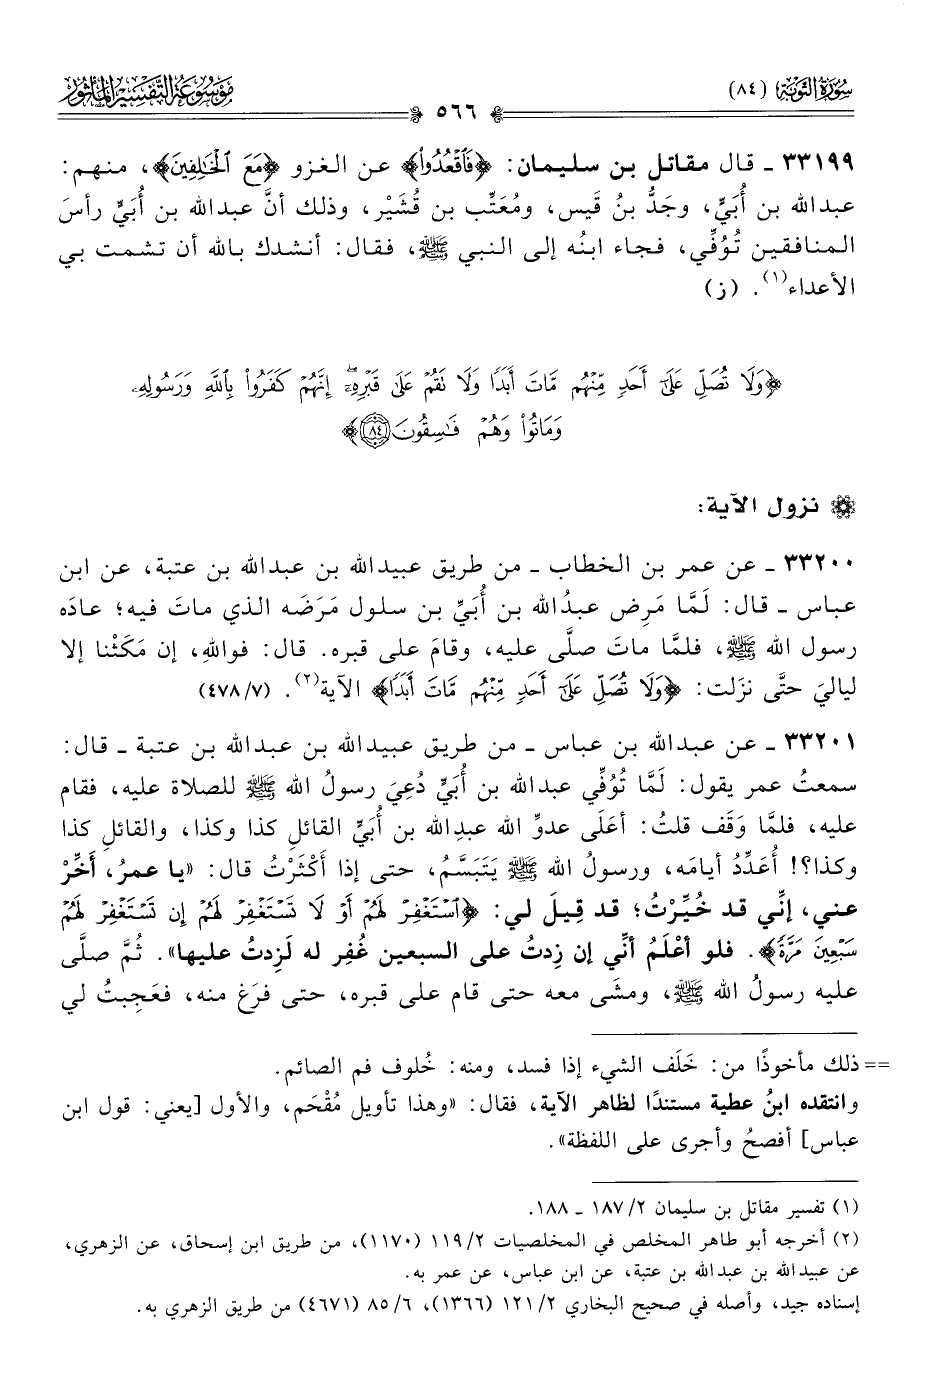 سُورَةُ التَّوْبَةِ (٨٤)
٥٦٦
مَوْسُوعَةُ التَّفْسِيْرِ المَأْثُورِ
٣٣١٩٩ ـ قال مقاتل بن سليمان: ﴿فَٱقْعُدُوا۟﴾ عن الغزو ﴿مَعَ ٱلْخَٰلِفِينَ﴾، منهم:
عبدالله بن أُبَيٍّ، وجَدُّ بنُ قَيس، ومُعَتِّب بن قُشَيْر، وذلك أنَّ عبدالله بن أُبَيٍّ رأسَ
المنافقين تُوُفِّي، فجاء ابنُه إلى النبي ﷺ، فقال: أنشدك بالله أن تشمت بي
الأعداء(١). (ز)
﴿وَلَا تُصَلِّ عَلَىٰٓ أَحَدٍ مِّنْهُم مَّاتَ أَبَدًا وَلَا تَقُمْ عَلَىٰ قَبْرِهِۦٓ ۖ إِنَّهُمْ كَفَرُوا۟ بِٱللَّهِ وَرَسُولِهِۦ
وَمَاتُوا۟ وَهُمْ فَٰسِقُونَ ٨٤﴾
نزول الآية:
٣٣٢٠٠ ـ عن عمر بن الخطاب ـ من طريق عبيدالله بن عبدالله بن عتبة، عن ابن
عباس ـ قال: لَمَّا مَرِض عبدُالله بن أُبَيِّ بن سلول مَرَضَه الذي ماتَ فيه؛ عادَه
رسول الله ﷺ، فلمَّا ماتَ صلَّى عليه، وقامَ على قبره. قال: فواللهِ، إن مَكَثْنا إلا
لياليَ حتَّى نزَلت: ﴿وَلَا تُصَلِّ عَلَىٰٓ أَحَدٍ مِّنْهُم مَّاتَ أَبَدًا﴾ الآية(٢). (٧/ ٤٧٨)
٣٣٢٠١ ـ عن عبدالله بن عباس ـ من طريق عبيدالله بن عبدالله بن عتبة ـ قال:
سمعتُ عمر يقول: لَمَّا تُوُفِّي عبدالله بن أُبَيٍّ دُعِيَ رسولُ الله ﷺ للصلاة عليه، فقام
عليه، فلمَّا وَقَف قلتُ: أعَلَى عدوِّ الله عبدِالله بن أُبَيٍّ القائلِ كذا وكذا، والقائلِ كذا
وكذا؟! أُعَدِّدُ أيامَه، ورسولُ الله ﷺ يَتَبَسَّمُ، حتى إذا أَكْثَرْتُ قال: «يا عمرُ، أخِّرْ
عني، إنِّي قد خُيِّرْتُ؛ قد قِيلَ لي: ﴿ٱسْتَغْفِرْ لَهُمْ أَوْ لَا تَسْتَغْفِرْ لَهُمْ إِن تَسْتَغْفِرْ لَهُمْ
سَبْعِينَ مَرَّةً﴾. فلو أعْلَمُ أنِّي إن زِدتُ على السبعين غُفِر له لَزِدتُ عليها». ثُمَّ صلَّى
عليه رسولُ الله ﷺ، ومشَى معه حتى قام على قبره، حتى فرَغ منه، فعَجِبتُ لي
== ذلك مأخوذًا من: خَلَف الشيء إذا فسد، ومنه: خُلوف فم الصائم.
وانتقده ابنُ عطية مستندًا لظاهر الآية، فقال: «وهذا تأويل مُقْحَم، والأول [يعني: قول ابن
عباس] أفصحُ وأجرى على اللفظة».
(١) تفسير مقاتل بن سليمان ٢/ ١٨٧ ـ ١٨٨.
(٢) أخرجه أبو طاهر المخلص في المخلصيات ٢/ ١١٩ (١١٧٠)، من طريق ابن إسحاق، عن الزهري،
عن عبيدالله بن عبدالله بن عتبة، عن ابن عباس، عن عمر به.
إسناده جيد، وأصله في صحيح البخاري ٢/ ١٢١ (١٣٦٦)، ٦/ ٨٥ (٤٦٧١) من طريق الزهري به.